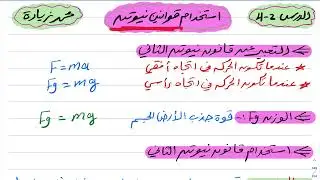 الدرس 2-4 استخدام قوانين نيوتن محمد زيادة
التعبير عن قانون نيوتن الثاني
* عندما تكون الحركة في اتجاه أفقي F = ma
* عندما تكون الحركة في اتجاه رأسي Fg = mg
الوزن Fg :- قوة جذب الأرض للجسم Fg = mg
استخدام قانون نيوتن الثاني